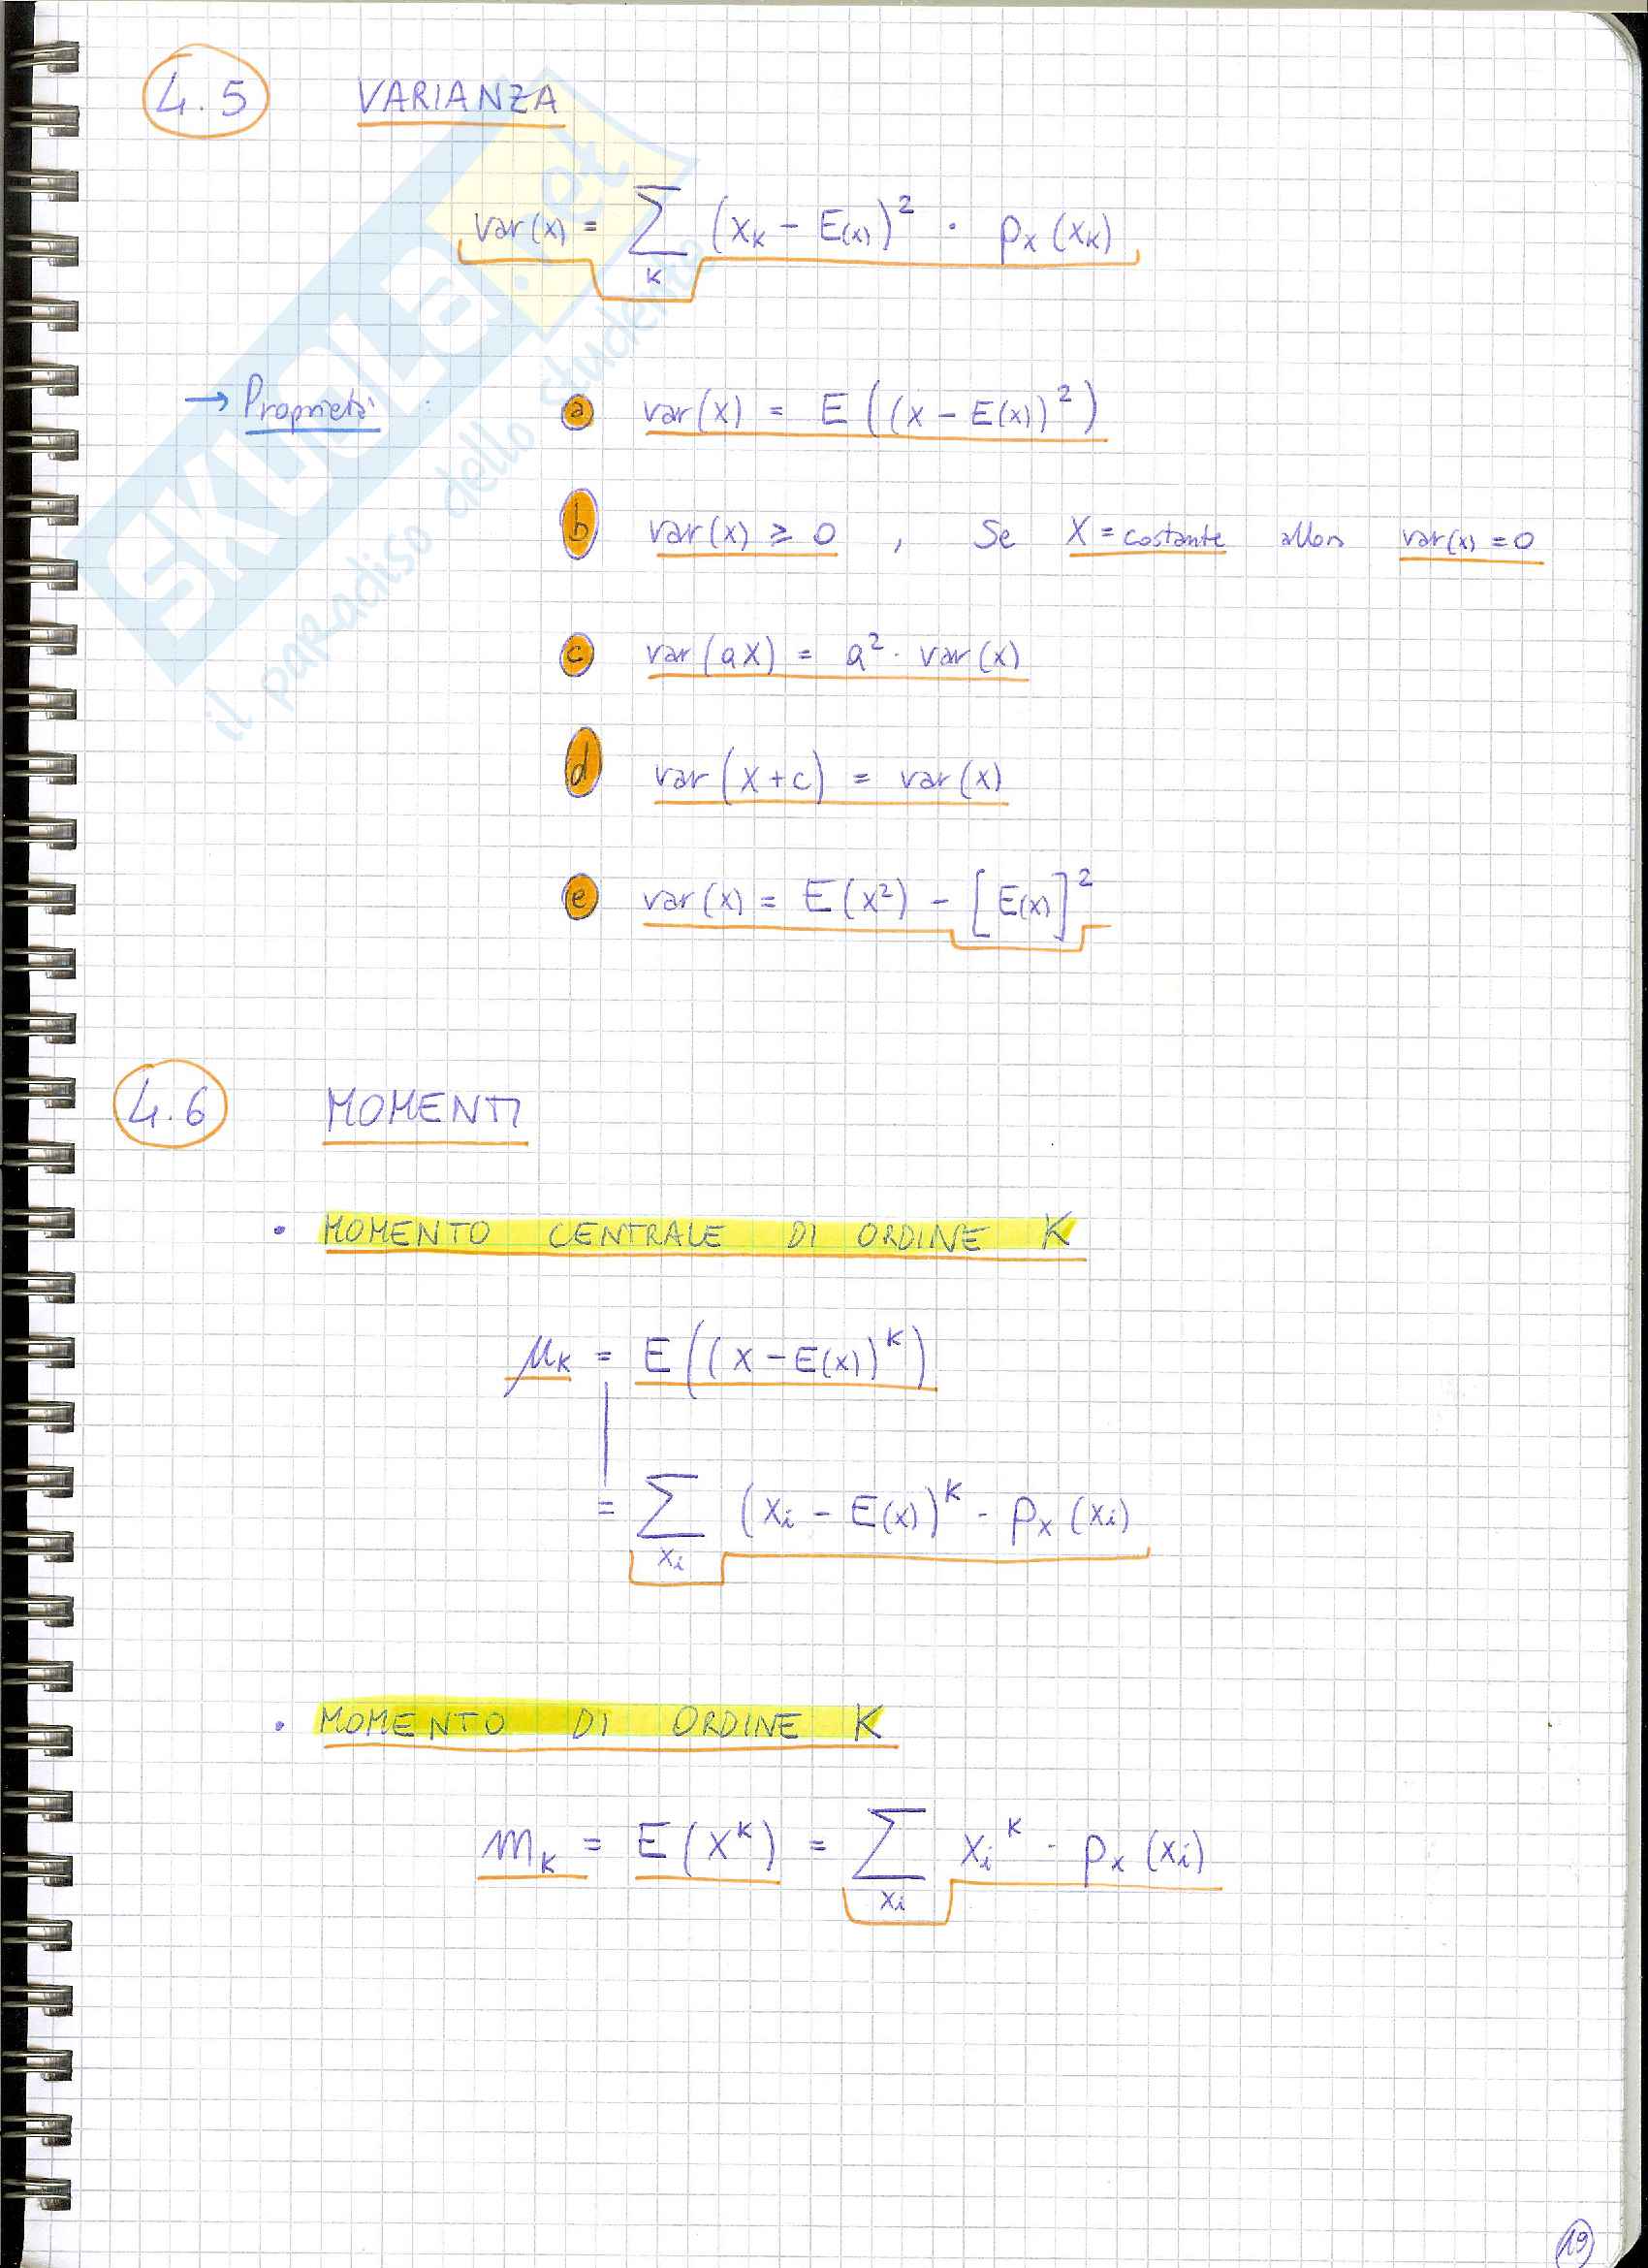 4.5 VARIANZA
var(x) = ∑_K (x_K − E(x))² · p_x(x_K)
→ Proprietà:
a var(x) = E((x − E(x))²)
b var(x) ≥ 0 , Se X = costante allora var(x) = 0
c var(aX) = a² · var(x)
d var(x+c) = var(x)
e var(x) = E(x²) − [E(x)]²
4.6 MOMENTI
• MOMENTO CENTRALE DI ORDINE K
μ_K = E((x − E(x))^K)
= ∑_{x_i} (x_i − E(x))^K · p_x(x_i)
• MOMENTO DI ORDINE K
m_K = E(X^K) = ∑_{x_i} x_i^K · p_x(x_i)
19
SKUOLA.net
il paradiso dello studente